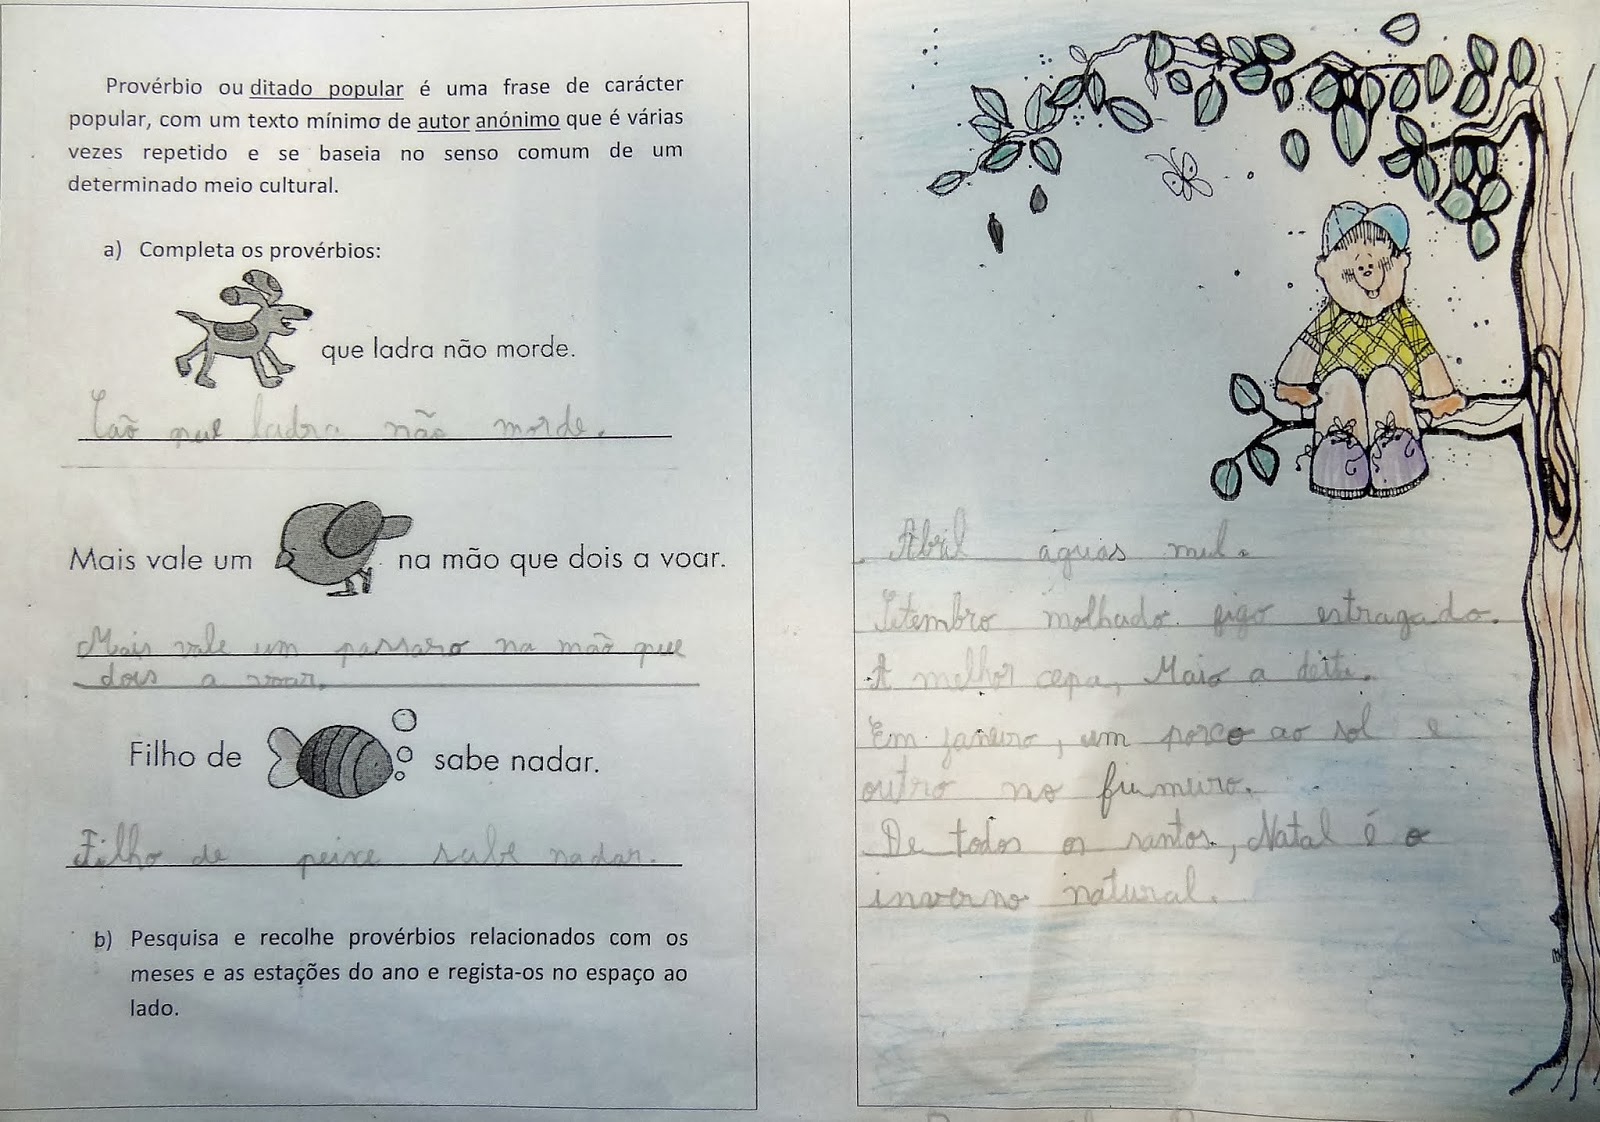 Provérbio ou ditado popular é uma frase de carácter
popular, com um texto mínimo de autor anónimo que é várias
vezes repetido e se baseia no senso comum de um
determinado meio cultural.
a) Completa os provérbios:
que ladra não morde.
Cão que ladra não morde.
Mais vale um na mão que dois a voar.
Mais vale um passaro na mão que
dois a voar.
Filho de sabe nadar.
Filho de peixe sabe nadar.
b) Pesquisa e recolhe provérbios relacionados com os
meses e as estações do ano e regista-os no espaço ao
lado.
Abril águas mil.
Setembro molhado figo estragado.
A melhor cepa, Maio a deita.
Em janeiro, um porco ao sol e
outro no fumeiro.
De todos os santos, Natal é o
inverno natural.